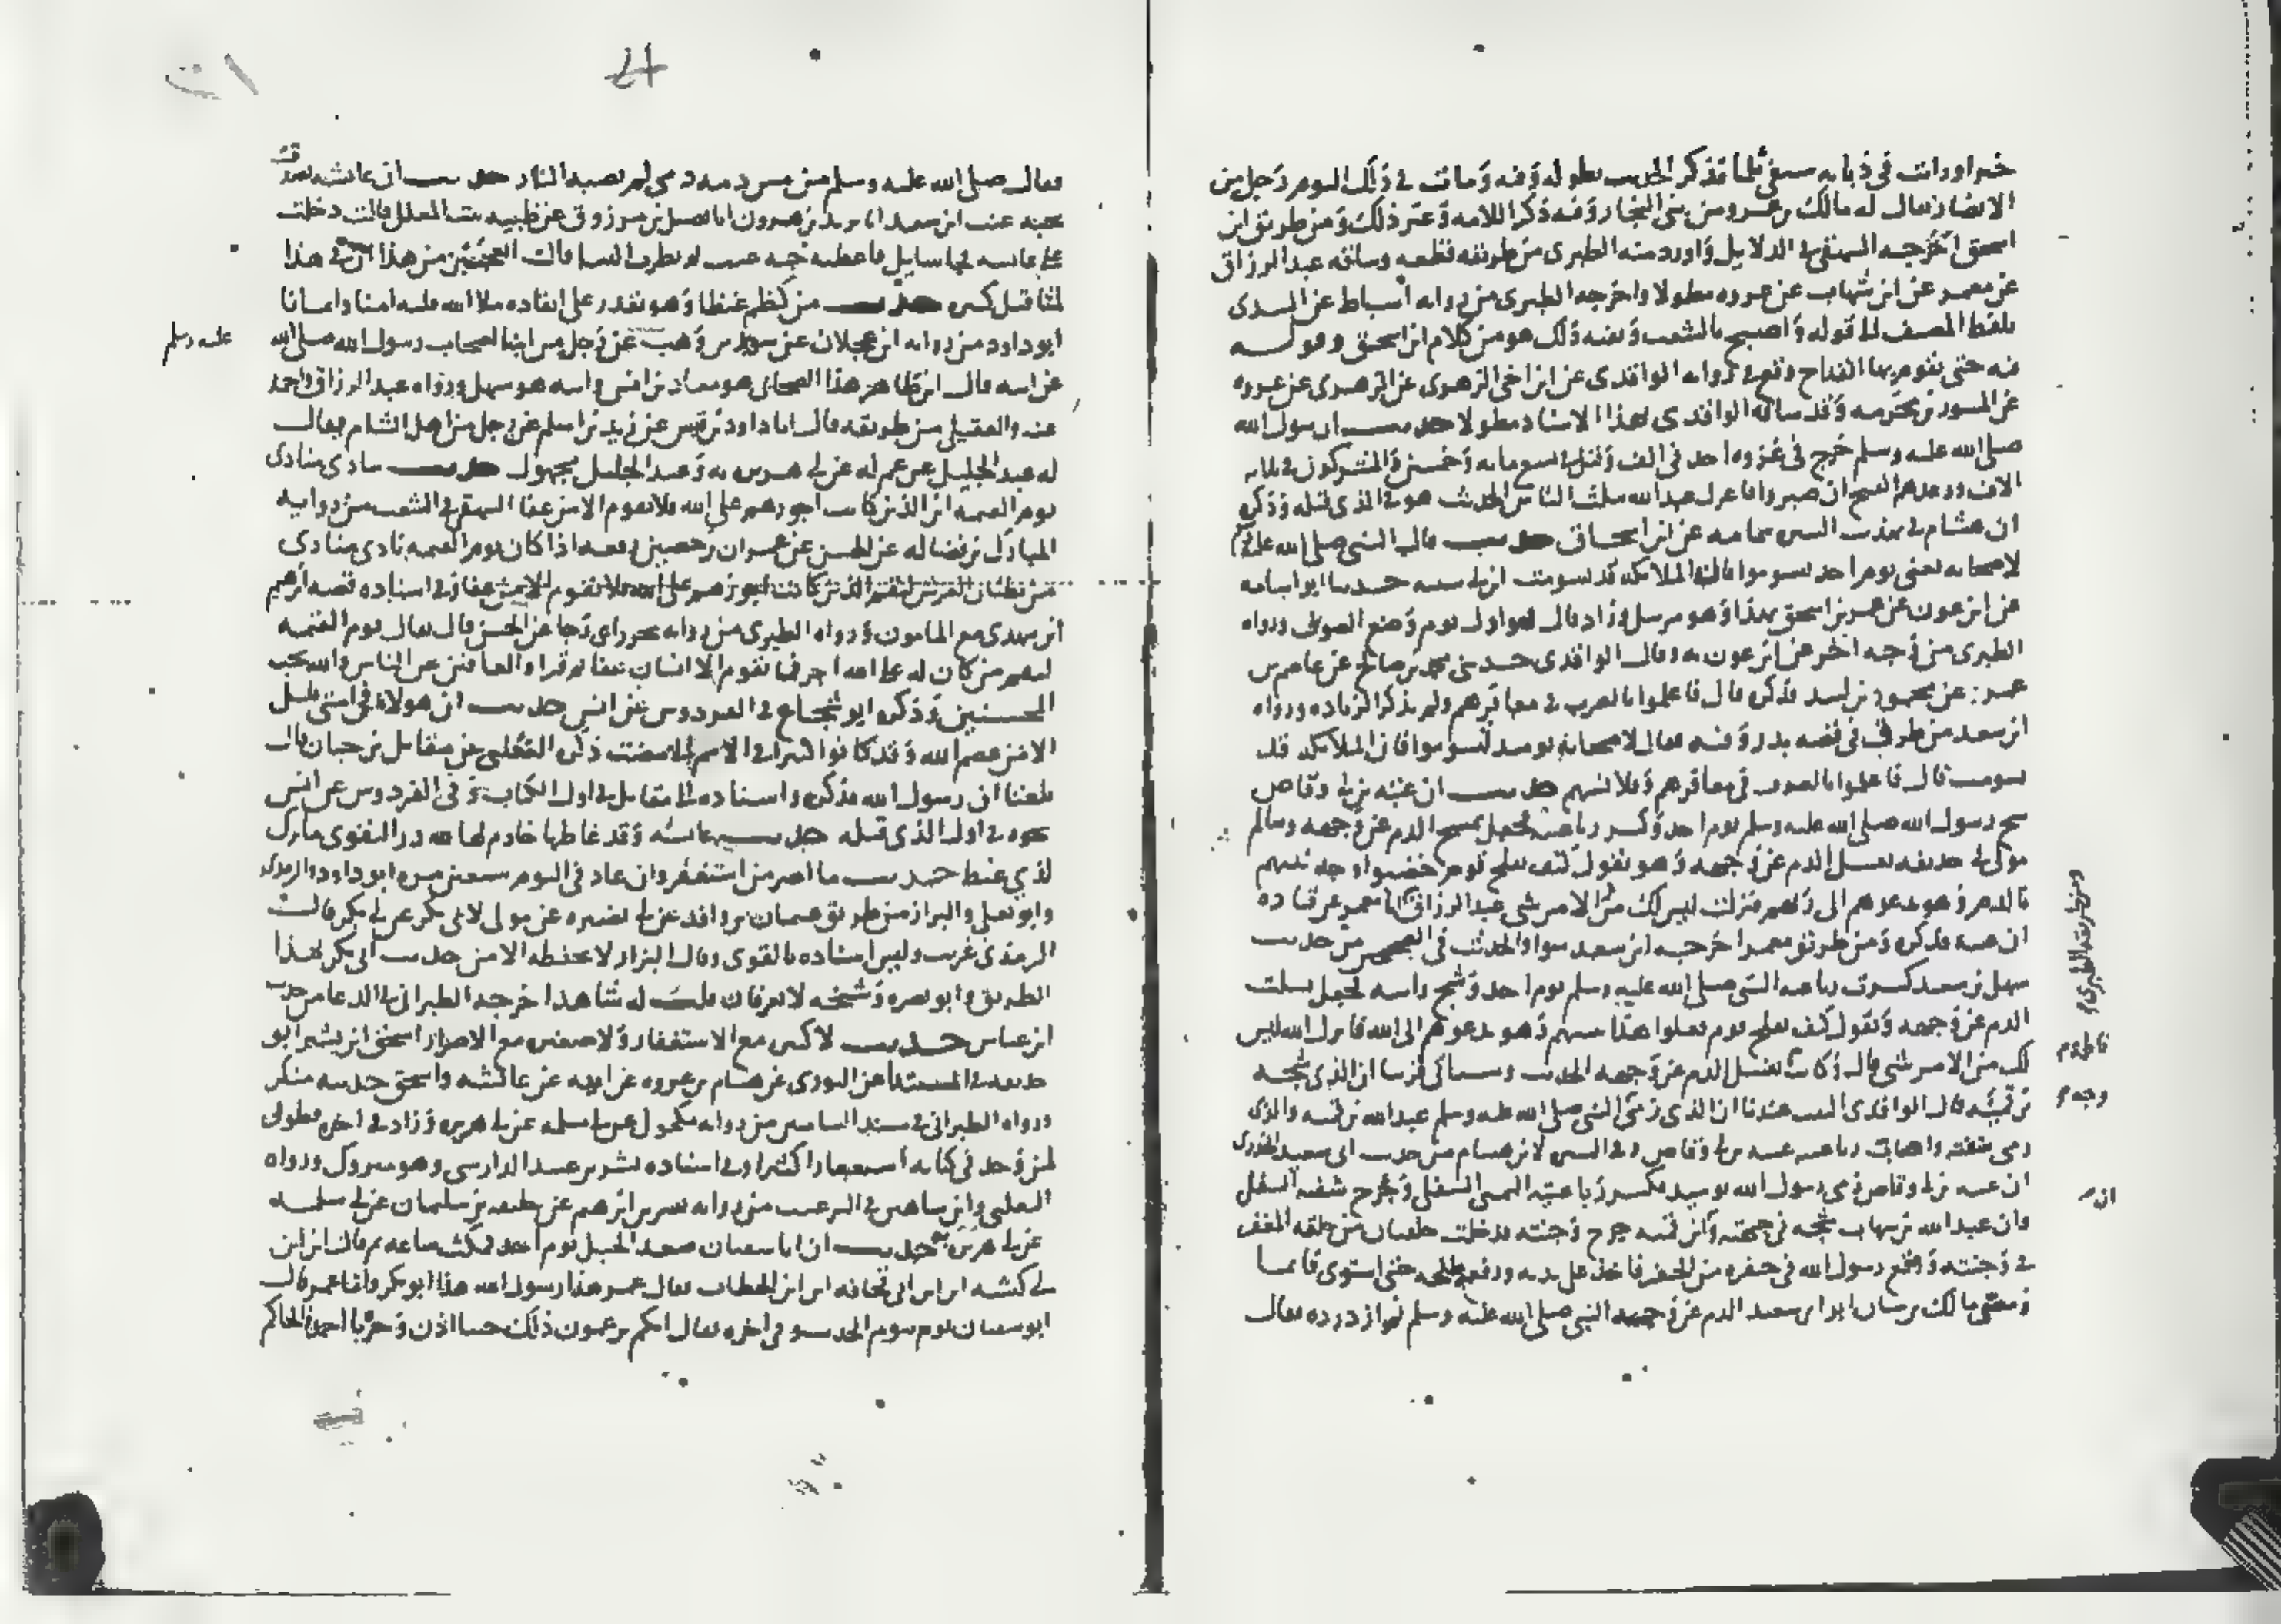 خيرا ورأت في ذبابه سيفي ثلما فذكر الحديث بطوله وفيه وما نت في ذلك اليوم رجل من
الانصار يقال له مالك بن عمرو من بني النجار وفيه ذكر اللامه وغير ذلك ومن طريق ابن
اسحق اخرجه البيهقي في الدلايل واورد منه الطبري من طريقه قطعه وساقه عبد الرزاق
عن معمر عن ابن شهاب عن عروه مطولا واخرجه الطبري من روايه اسباط عن السدي
بلفظ المصنف الى قوله واصبح بالشعب وبقيه ذلك هو من كلام ابن اسحق وقوله
فيه حتى يقوم بها القداح وقع في روايه الواقدي عن ابن اخي الزهري عن الزهري عن عروه
عن المسور بن مخرمه وقد ساقه الواقدي بهذا الاسناد مطولا حديث ان رسول الله
صلى الله عليه وسلم خرج في غزوه احد في الف وقيل في تسع مايه وخمسين والمشركون في ثلاثه
الاف ووعدهم الفتح ان صبروا
ان هشام في تهذيب السيره عن ابن اسحاق حديث قال النبي صلى الله عليه
لاصحابه يعني يوم احد تسوموا فان الملائكه قد تسومت ابن ابي شيبه حدثنا ابو اسامه
عن ابن عون عن عمير بن اسحق بهذا وهو مرسل وزاد قال فهو اول يوم وضع الصوف ورواه
الطبري من وجه اخر عن ابن عون به وقال الواقدي حدثني محمد بن صالح عن عاصم بن
عمر عن محمود بن لبيد فذكره قال فاعلموا بالصوف في مغافرهم ولم يذكر الزياده ورواه
ابن سعد من طرق في قصه بدر وفيه فقال لاصحابه يوميذ تسوموا فان الملائكه قد
سومت قال فاعلموا بالصوف في مغافرهم وقلانسهم حديث ان عتبه بن ابي وقاص
شج رسول الله صلى الله عليه وسلم يوم احد وكسر رباعيته فجعل يمسح الدم عن وجهه وسالم
مولى ابي حذيفه يغسل الدم عن وجهه وهو يقول كيف يفلح قوم خضبوا وجه نبيهم
بالدم وهو يدعوهم الى ربهم فنزلت ليس لك من الامر شي عبد الرزاق انا معمر عن قتاده
ان عتبه فذكره ومن طريق معمر اخرجه ابن سعد سوا والحديث في الصحيحين من حديث
سهل بن سعد كسرت رباعيه النبي صلى الله عليه وسلم يوم احد وشج راسه فجعل يسلت
الدم عن وجهه ويقول كيف يفلح قوم فعلوا هذا بنبيهم وهو يدعوهم الى الله فانزل الله ليس
لك من الامر شي قال وكانت تغسل الدم عن وجهه الحديث وسياتي قريبا ان الذي شجه
بن قميئه قال الواقدي الثبت عندنا ان الذي رمى النبي صلى الله عليه وسلم عبد الله بن قميه والذي
رمى شفته واصاب رباعيته عتبه بن ابي وقاص وفي السيره لابن هشام من حديث ابي سعيد الخدري
ان عتبه بن ابي وقاص رمى رسول الله يوميذ فكسر رباعيته اليمنى السفلى وجرح شفته السفلى
وان عبد الله بن شهاب شجه في جبهته وان ابن قميه جرح وجنته فدخلت حلقتان من حلقه المغفر
في وجنته ووقع رسول الله في حفره من الحفر فاخذ علي بيده ورفعه طلحه حتى استوى قايما
ومص مالك بن سنان ابو ابي سعيد الدم عن وجهه النبي صلى الله عليه وسلم ثم ازدرده فقال
ومن طريقه الطبري
فاطمه
وجه
ابن
فقال صلى الله عليه وسلم من مس دمه دمي لم تصبه النار حديث ان عايشه تصدقت
بحبه عنب ابن سعد انا يزيد بن هرون انا فضيل بن مرزوق عن ظبيه بنت المعلل قالت دخلت
على عايشه فجا سايل فاعطته حبه عنب ثم نظرت الينا فقالت اتعجبين من هذا ان في هذا
لمثاقيل كثيره حديث من كظم غيظا وهو يقدر على انفاده ملا الله قلبه امنا وايمانا
ابو داود من روايه ابن عجلان عن سويد بن وهب عن رجل من ابنا اصحاب رسول الله صلى الله
عليه وسلم
عن ابيه قال ابن طاهر هذا الصحابي هو معاذ بن انس وابنه هو سهل ورواه عبد الرزاق واحمد
عنه والعقيلي من طريقه قال انا داود بن قيس عن زيد بن اسلم عن رجل من اهل الشام يقال
له عبد الجليل عن عم له عن ابي هريره به وعبد الجليل مجهول حديث ينادي منادي
يوم القيمه اين الذين كانت اجورهم على الله فلا يقوم الا من عفا البيهقي في الشعب من روايه
المبارك بن فضاله عن الحسن عن عمران بن حصين رفعه اذا كان يوم القيمه نادى منادي
من بطنان العرش ليقم الذين كانت اجورهم على الله فلا يقوم الا من عفا وفي اسناده قصه ابرهيم
ابن مهدي مع المامون ورواه الطبري من روايه محرز ابي رجا عن الحسن قال يقال يوم القيمه
ليقم من كان له على الله اجر فما يقوم الا انسان عفا ثم قرا والعافين عن الناس والله يحب
المحسنين وذكره ابو شجاع في الفردوس عن انس حديث ان هولا في امتي قليل
الا من عصم الله وقد كانوا كثيرا في الامم التي مضت ذكره الثعلبي عن مقاتل بن حيان قال
بلغنا ان رسول الله فذكره واسناده الى مقاتل في اول الكتاب وفي الفردوس عن انس
نحوه في اوله الذي قبله حديث عايشه وقد غاظها خادم لها لله در التقوى ما تركت
لذي غيظ حديث ما اصر من استغفر وان عاد في اليوم سبعين مره ابو داود والترمذي
وابو يعلى والبزار من طريق عثمان بن واقد عن ابي نصيره عن مولى لابي بكر عن ابي بكر قال
الترمذي غريب وليس اسناده بالقوي وقال البزار لا نحفظه الا من حديث ابي بكر بهذا
الطريق وابو نصيره وشيخه لا يعرفان قلت له شاهد اخرجه الطبراني في الدعا من حديث
ابن عباس حديث لا كبيره مع الاستغفار ولا صغيره مع الاصرار اسحق ابن بشر ابو
حذيفه في المبتدا عن الثوري عن هشام بن عروه عن ابيه عن عايشه واسحق حديثه منكر
ورواه الطبراني في مسند الشاميين من روايه مكحول عن ابي سلمه عن ابي هريره وزاد في اخره فطوبى
لمن وجد في كتابه استغفارا كثيرا وفي اسناده بشر بن عبيد الدارسي وهو متروك ورواه
الثعلبي وابن شاهين في الترغيب من روايه بشر بن ابرهيم عن خليفه بن سليمان عن ابي سلمه
عن ابي هريره به حديث ان ابا سفيان صعد الجبل يوم احد فمكث ساعه ثم قال اين ابن
ابي كبشه اين ابن ابي قحافه اين ابن الخطاب فقال عمر هذا رسول الله هذا ابو بكر وها انا عمر قال
ابو سفيان يوم بيوم الحديث وفي اخره فقال انكم تزعمون ذلك خبنا اذن وخسرنا احمد والحاكم